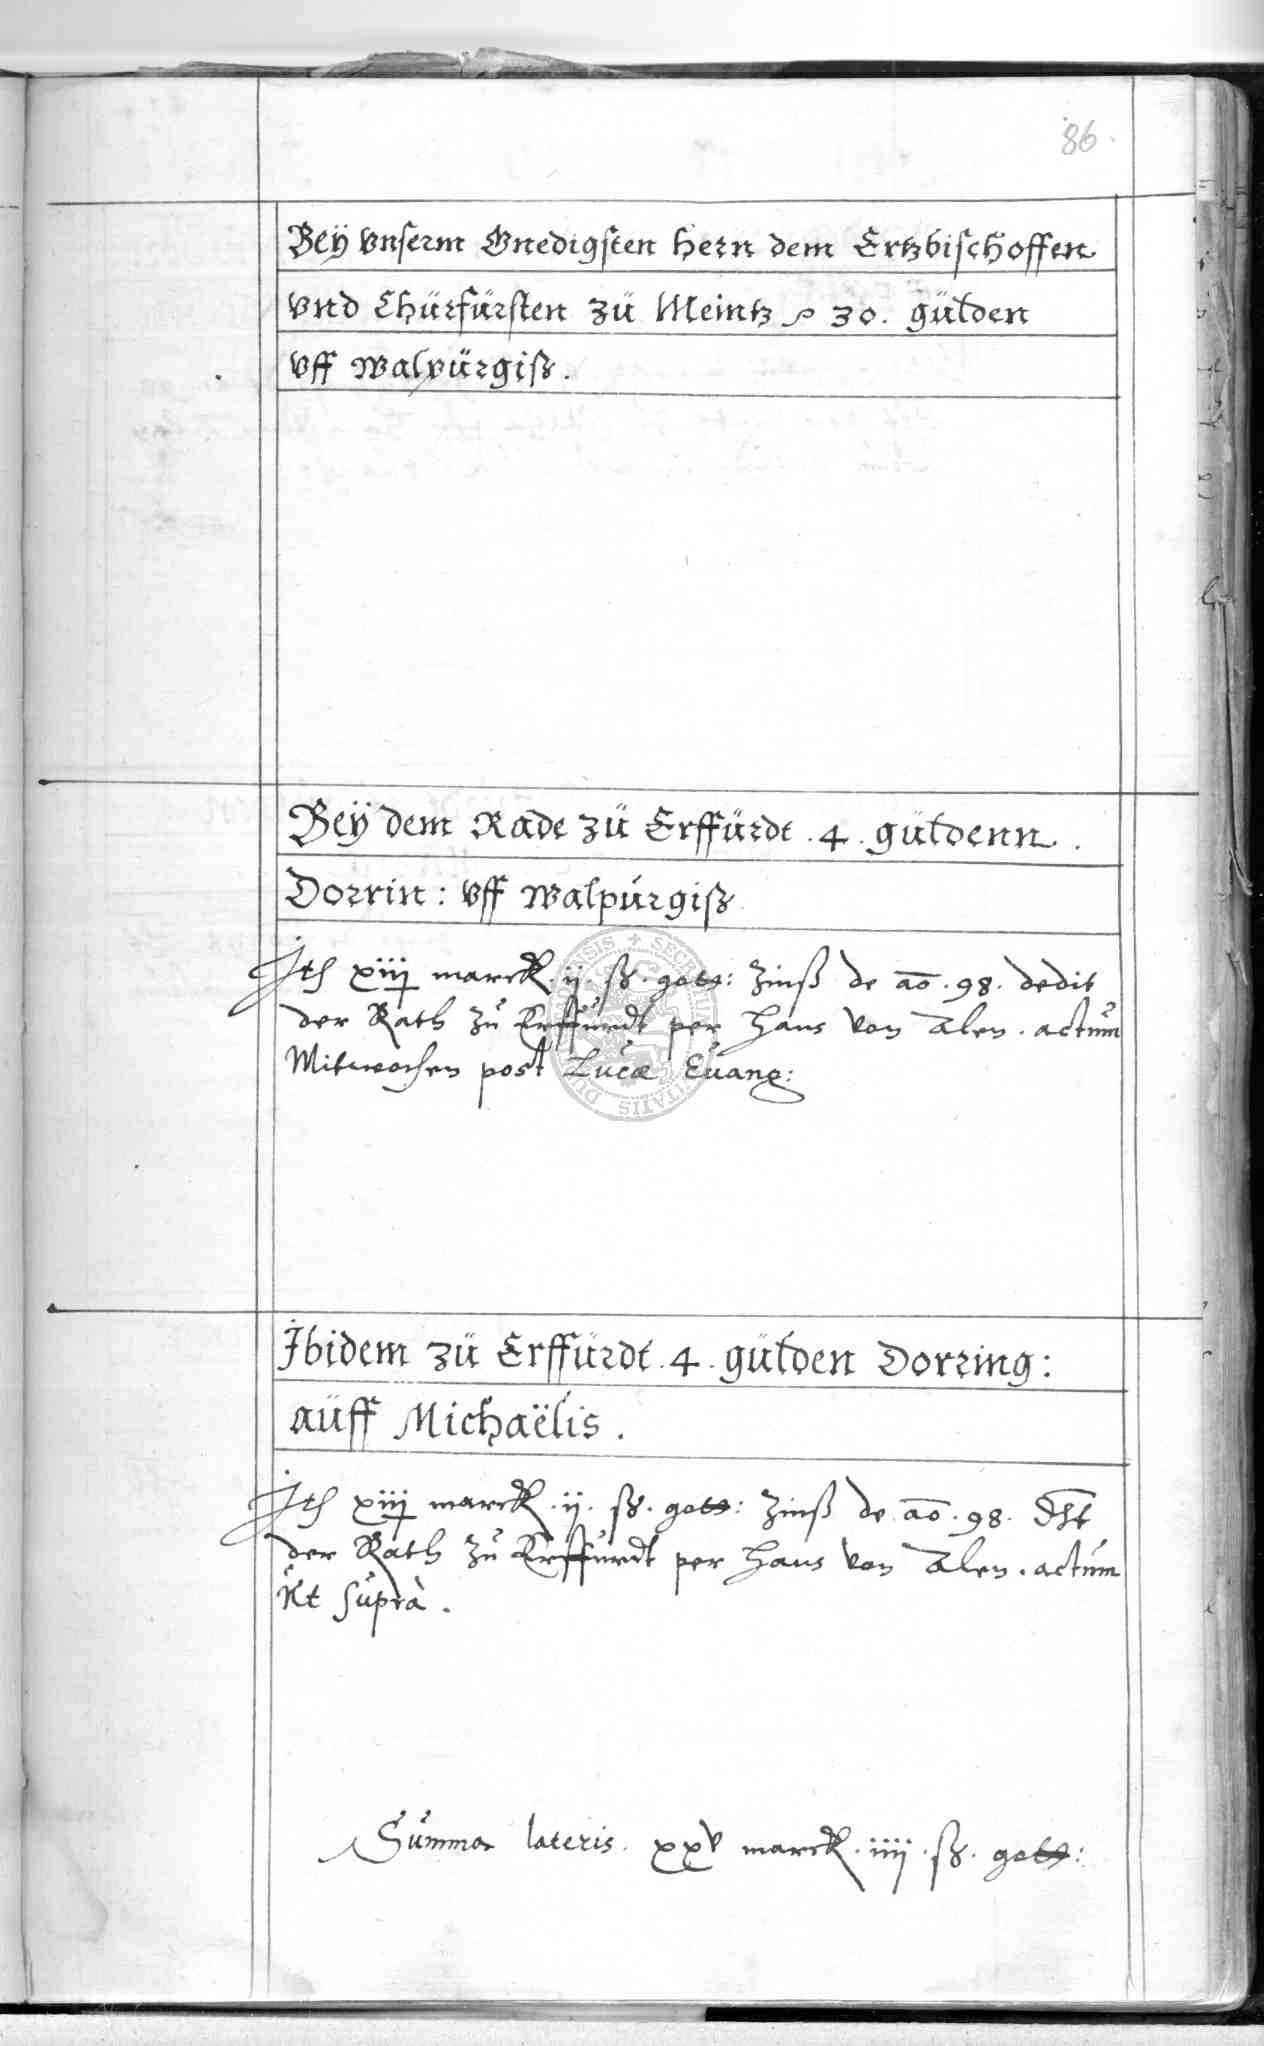 86.
Beÿ vnserm Gnedigsten hern dem Ertzbischoffen
vnd Chürfürsten zü Meintz 30. gülden
vff Walpürgiß.
Beÿ dem Rade zü Erffürdt .4. güldenn.
Dorrin: vff Walpürgiß
xiij marck. ij. ß. gots: Zinß de ao. 98. dedit
der Rath zů Erffurdt per Hans von Alen. actům
Mitwochen post Lucæ Euang:
Ibidem zü Erffürdt .4. gülden Dorring:
aüff Michaëlis.
xiij marck. ij. ß. gots: Zinß de ao. 98. dt
der Rath zů Erffurdt per Hans von Alen. actům
Ut suprà.
Summa lateris. xxv marck. iiij. ß. gots:
SECRETUM CIVITATIS